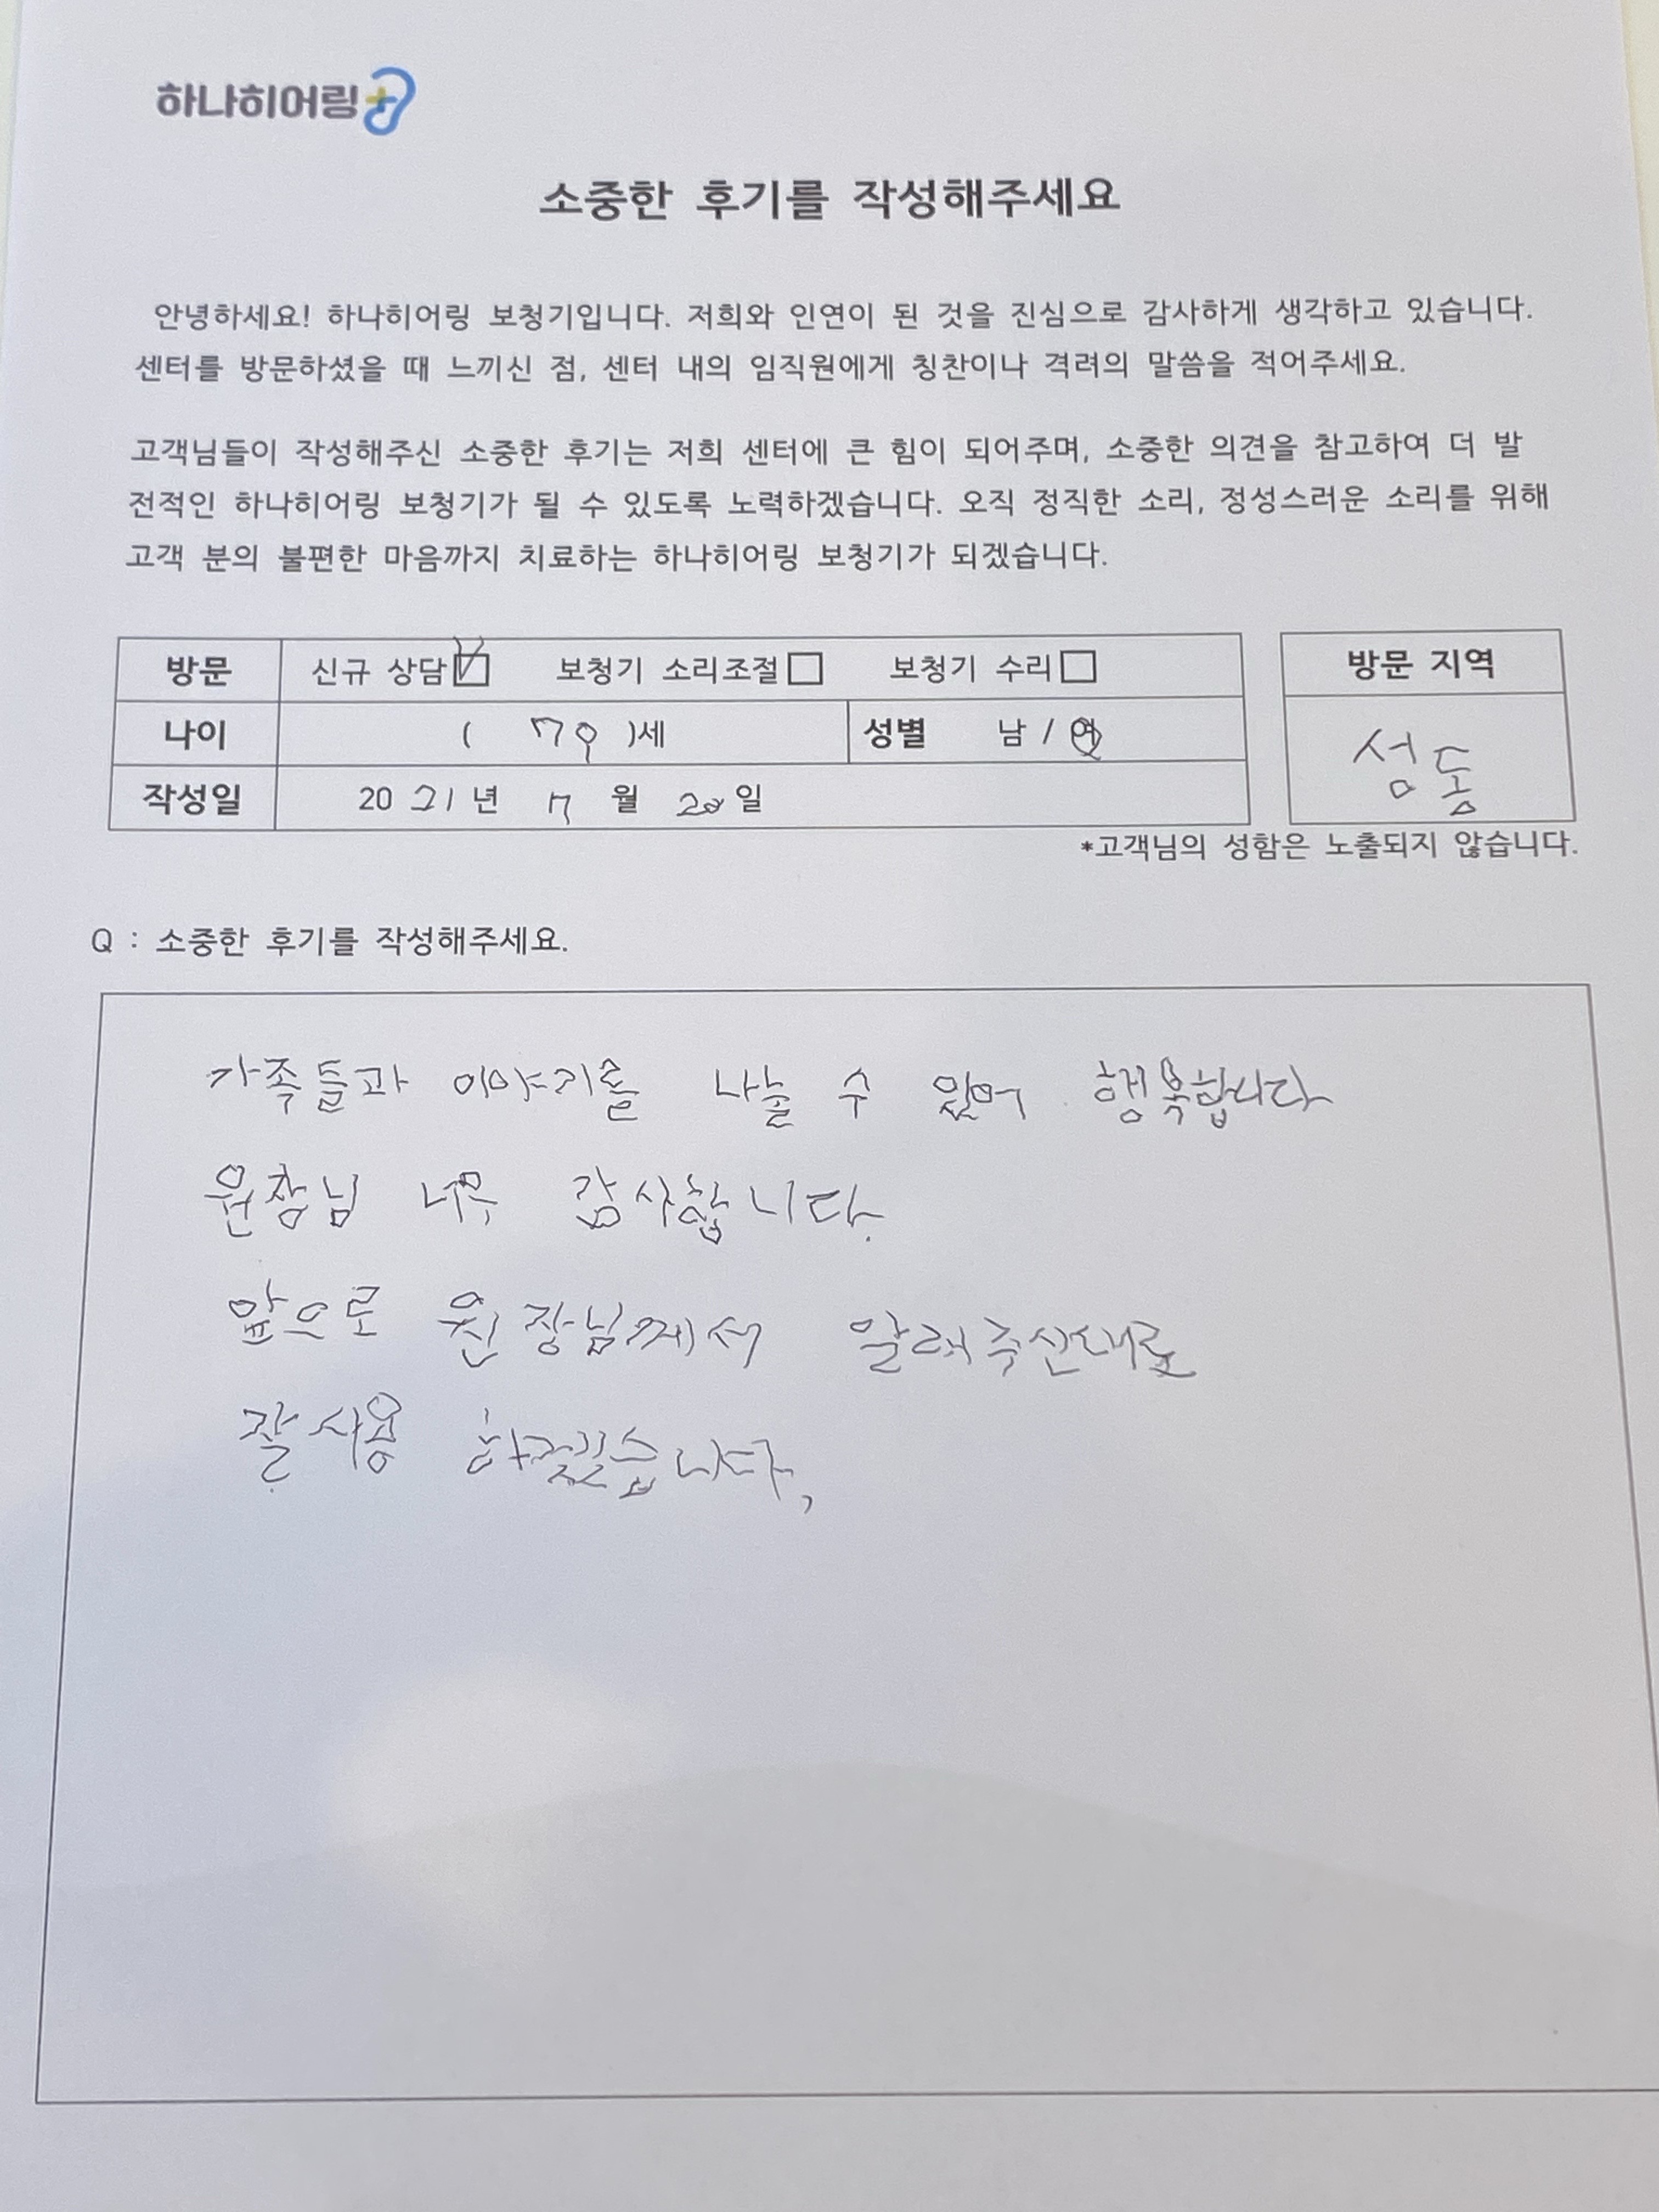 하나히어링
소중한 후기를 작성해주세요
안녕하세요! 하나히어링 보청기입니다. 저희와 인연이 된 것을 진심으로 감사하게 생각하고 있습니다.
센터를 방문하셨을 때 느끼신 점, 센터 내의 임직원에게 칭찬이나 격려의 말씀을 적어주세요.
고객님들이 작성해주신 소중한 후기는 저희 센터에 큰 힘이 되어주며, 소중한 의견을 참고하여 더 발
전적인 하나히어링 보청기가 될 수 있도록 노력하겠습니다. 오직 정직한 소리, 정성스러운 소리를 위해
고객 분의 불편한 마음까지 치료하는 하나히어링 보청기가 되겠습니다.
방문 신규 상담 보청기 소리조절 보청기 수리 방문 지역
나이 ( 79 )세 성별 남 / 여 성동
작성일 2021년 7월 일
*고객님의 성함은 노출되지 않습니다.
Q : 소중한 후기를 작성해주세요.
가족들과 이야기를 나눌 수 있어 행복합니다
원장님 너무 감사합니다.
앞으로 원장님께서 알려주신대로
잘 사용 하겠습니다,